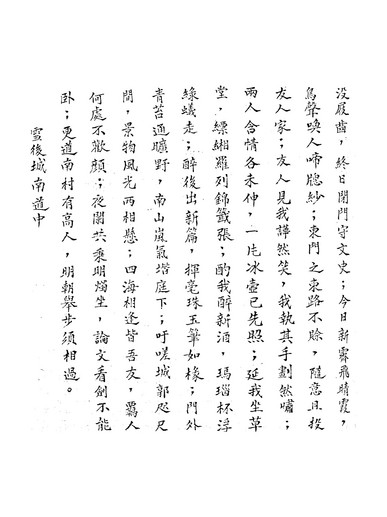 没屐齒，終日閉門守文史；今日新霽飛晴霞，
鳥聲喚人啼牕紗；東門之東路不賒，隨意且投
友人家；友人見我譁然笑，我執其手劃然嘯；
兩人含情各未伸，一片冰壺已先照；延我坐草
堂，縹緗羅列錦籤張；酌我醉新酒，瑪瑙杯浮
綠蟻走；醉後出新篇，揮毫珠玉筆如椽；門外
青苔通曠野，南山嵐氣堦庭下；吁嗟城郭咫尺
間，景物風光两相懸；四海相逢皆吾友，羈人
何處不歡顏；夜闌共乘明燭坐，論文看劍不能
卧；更道南村有高人，明朝舉步須相過。
雪後城南道中